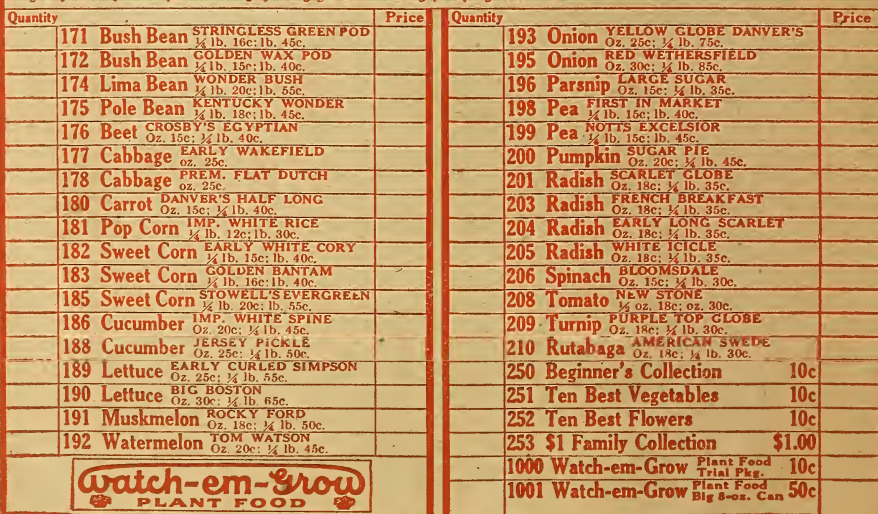 Quantity Price
171 Bush Bean STRINGLESS GREEN POD
¼ lb. 16c; lb. 45c.
172 Bush Bean GOLDEN WAX POD
¼ lb. 15c; lb. 40c.
174 Lima Bean WONDER BUSH
¼ lb. 20c; lb. 55c.
175 Pole Bean KENTUCKY WONDER
¼ lb. 18c; lb. 45c.
176 Beet CROSBY'S EGYPTIAN
Oz. 15c; ¼ lb. 40c.
177 Cabbage EARLY WAKEFIELD
oz. 25c.
178 Cabbage PREM. FLAT DUTCH
oz. 25c.
180 Carrot DANVER'S HALF LONG
Oz. 15c; ¼ lb. 40c.
181 Pop Corn IMP. WHITE RICE
¼ lb. 12c; lb. 30c.
182 Sweet Corn EARLY WHITE CORY
¼ lb. 15c; lb. 40c.
183 Sweet Corn GOLDEN BANTAM
¼ lb. 16c; lb. 40c.
185 Sweet Corn STOWELL'S EVERGREEN
¼ lb. 20c; lb. 55c.
186 Cucumber IMP. WHITE SPINE
Oz. 20c; ¼ lb. 45c.
188 Cucumber JERSEY PICKLE
Oz. 25c; ¼ lb. 50c.
189 Lettuce EARLY CURLED SIMPSON
Oz. 25c; ¼ lb. 55c.
190 Lettuce BIG BOSTON
Oz. 30c; ¼ lb. 65c.
191 Muskmelon ROCKY FORD
Oz. 18c; ¼ lb. 50c.
192 Watermelon TOM WATSON
Oz. 20c; ¼ lb. 45c.
Watch-em-Grow
PLANT FOOD
Quantity Price
193 Onion YELLOW GLOBE DANVER'S
Oz. 25c; ¼ lb. 75c.
195 Onion RED WETHERSFIELD
Oz. 30c; ¼ lb. 85c.
196 Parsnip LARGE SUGAR
Oz. 15c; ¼ lb. 35c.
198 Pea FIRST IN MARKET
¼ lb. 15c; lb. 40c.
199 Pea NOTTS EXCELSIOR
¼ lb. 15c; lb. 45c.
200 Pumpkin SUGAR PIE
Oz. 20c; ¼ lb. 45c.
201 Radish SCARLET GLOBE
Oz. 18c; ¼ lb. 35c.
203 Radish FRENCH BREAKFAST
Oz. 18c; ¼ lb. 35c.
204 Radish EARLY LONG SCARLET
Oz. 18c; ¼ lb. 35c.
205 Radish WHITE ICICLE
Oz. 18c; ¼ lb. 35c.
206 Spinach BLOOMSDALE
Oz. 15c; ¼ lb. 30c.
208 Tomato NEW STONE
½ oz. 18c; oz. 30c.
209 Turnip PURPLE TOP GLOBE
Oz. 18c; ¼ lb. 30c.
210 Rutabaga AMERICAN SWEDE
Oz. 18c; ¼ lb. 30c.
250 Beginner's Collection 10c
251 Ten Best Vegetables 10c
252 Ten Best Flowers 10c
253 $1 Family Collection $1.00
1000 Watch-em-Grow Plant Food Trial Pkg. 10c
1001 Watch-em-Grow Plant Food Big 8-oz. Can 50c